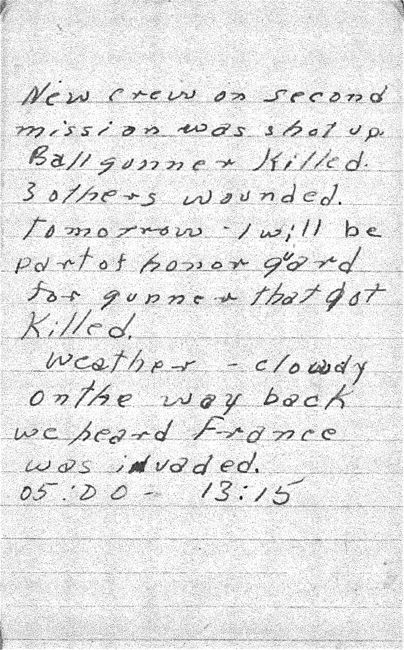 New crew on second
mission was shot up.
Ball gunner Killed.
3 others wounded.
Tomorrow - I will be
part of honor guard
for gunner that got
Killed.
Weather - cloudy
on the way back
we heard France
was invaded.
05:00 - 13:15